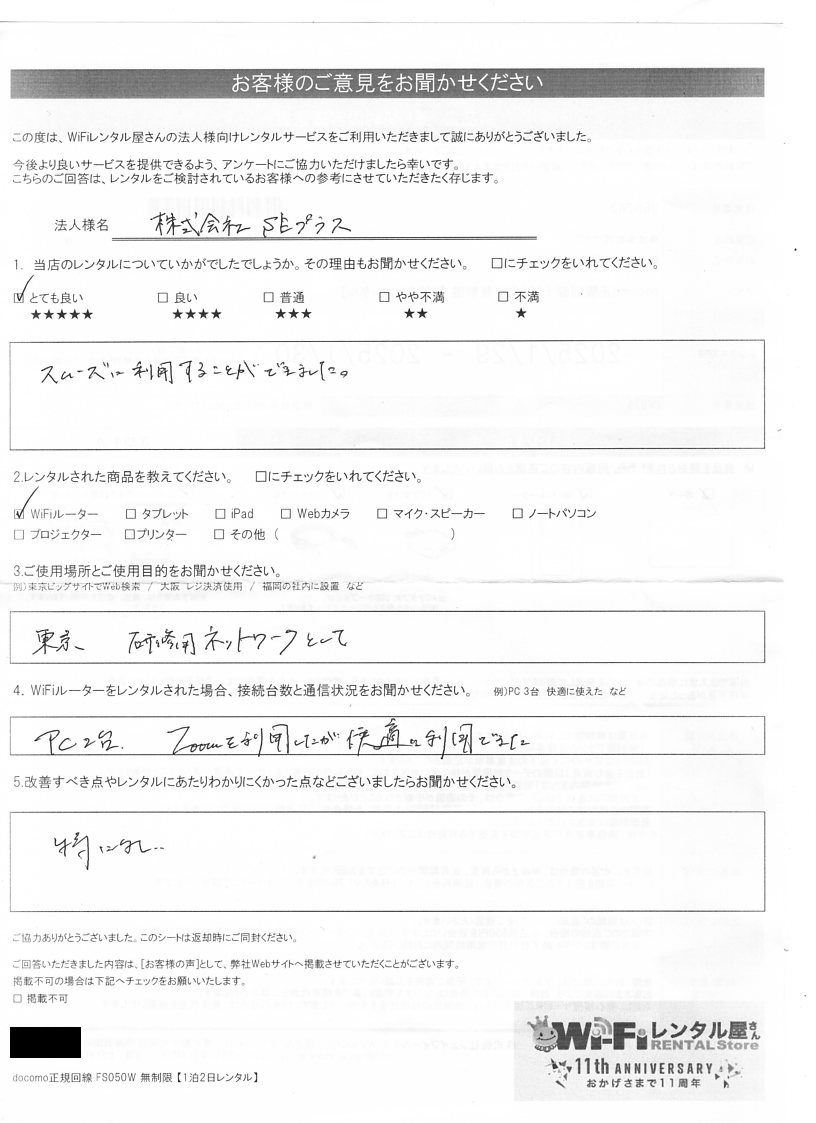 お客様のご意見をお聞かせください
この度は、WiFiレンタル屋さんの法人様向けレンタルサービスをご利用いただきまして誠にありがとうございました。
今後より良いサービスを提供できるよう、アンケートにご協力いただけましたら幸いです。
こちらのご回答は、レンタルをご検討されているお客様への参考にさせていただきたく存じます。
法人様名 株式会社 SEプラス
1. 当店のレンタルについていかがでしたでしょうか。その理由もお聞かせください。 □にチェックをいれてください。
☑ とても良い □ 良い □ 普通 □ やや不満 □ 不満
★★★★★ ★★★★ ★★★ ★★ ★
スムーズに利用することができました。
2.レンタルされた商品を教えてください。 □にチェックをいれてください。
☑ WiFiルーター □ タブレット □ iPad □ Webカメラ □ マイク・スピーカー □ ノートパソコン
□ プロジェクター □プリンター □ その他 ( )
3.ご使用場所とご使用目的をお聞かせください。
例)東京ビッグサイトでWeb検索 / 大阪 レジ決済使用 / 福岡の社内に設置 など
東京 研修用ネットワークとして
4. WiFiルーターをレンタルされた場合、接続台数と通信状況をお聞かせください。 例)PC 3台 快適に使えた など
PC2台. Zoomを利用したが快適に利用できた
5.改善すべき点やレンタルにあたりわかりにくかった点などございましたらお聞かせください。
特になし..
ご協力ありがとうございました。このシートは返却時にご同封ください。
ご回答いただきました内容は、[お客様の声]として、弊社Webサイトへ掲載させていただくことがございます。
掲載不可の場合は下記へチェックをお願いいたします。
□ 掲載不可
Wi-Fiレンタル屋さん
RENTAL Store
11th ANNIVERSARY
おかげさまで11周年
docomo正規回線 FS050W 無制限【1泊2日レンタル】